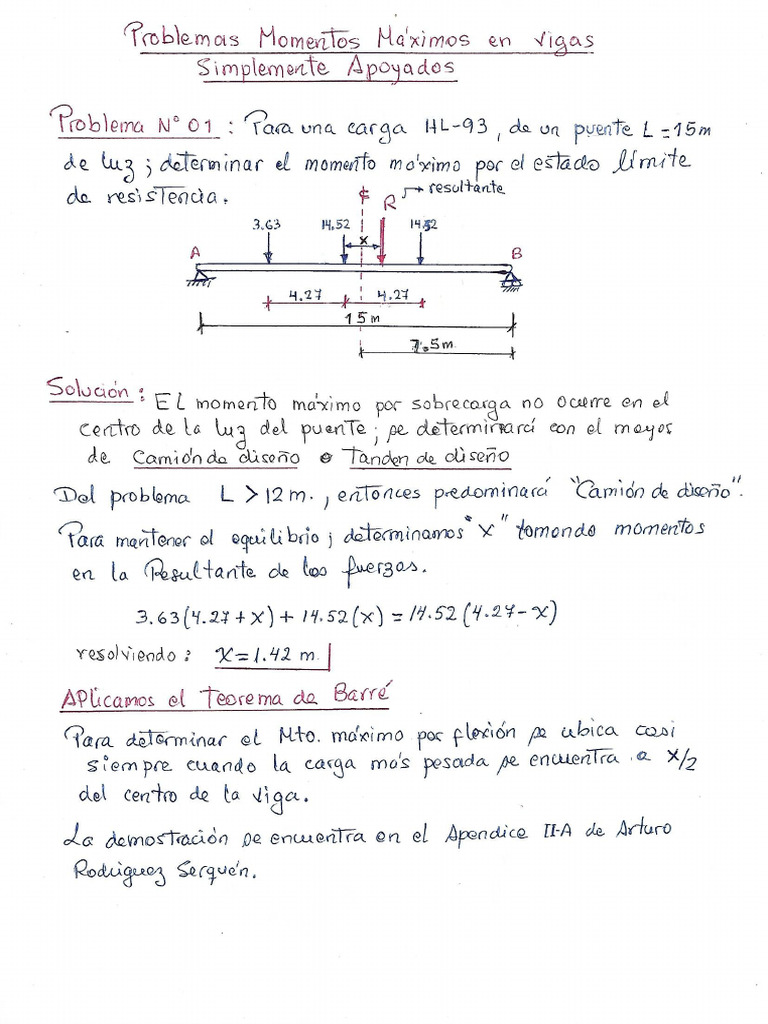 Problemas Momentos Máximos en vigas
Simplemente Apoyados
Problema N° 01 : Para una carga HL-93, de un puente L=15m
de luz ; determinar el momento máximo por el estado límite
de resistencia.
resultante
R
3.63 14.52 x 14.52
A B
4.27 4.27
15m
7.5m
Solución : El momento máximo por sobrecarga no ocurre en el
centro de la luz del puente; se determinará con el mayos
de Camión de diseño o Tanden de diseño
Del problema L > 12 m. , entonces predominará "Camión de diseño".
Para mantener el equilibrio ; determinamos "x" tomando momentos
en la Resultante de los fuerzas.
3.63(4.27+x) + 14.52(x) = 14.52(4.27-x)
resolviendo : x=1.42 m.
APlicamos el Teorema de Barré
Para determinar el Mto. máximo por flexión se ubica casi
siempre cuando la carga más pesada se encuentra a x/2
del centro de la viga.
La demostración se encuentra en el Apendice II-A de Arturo
Rodriguez Serquén.